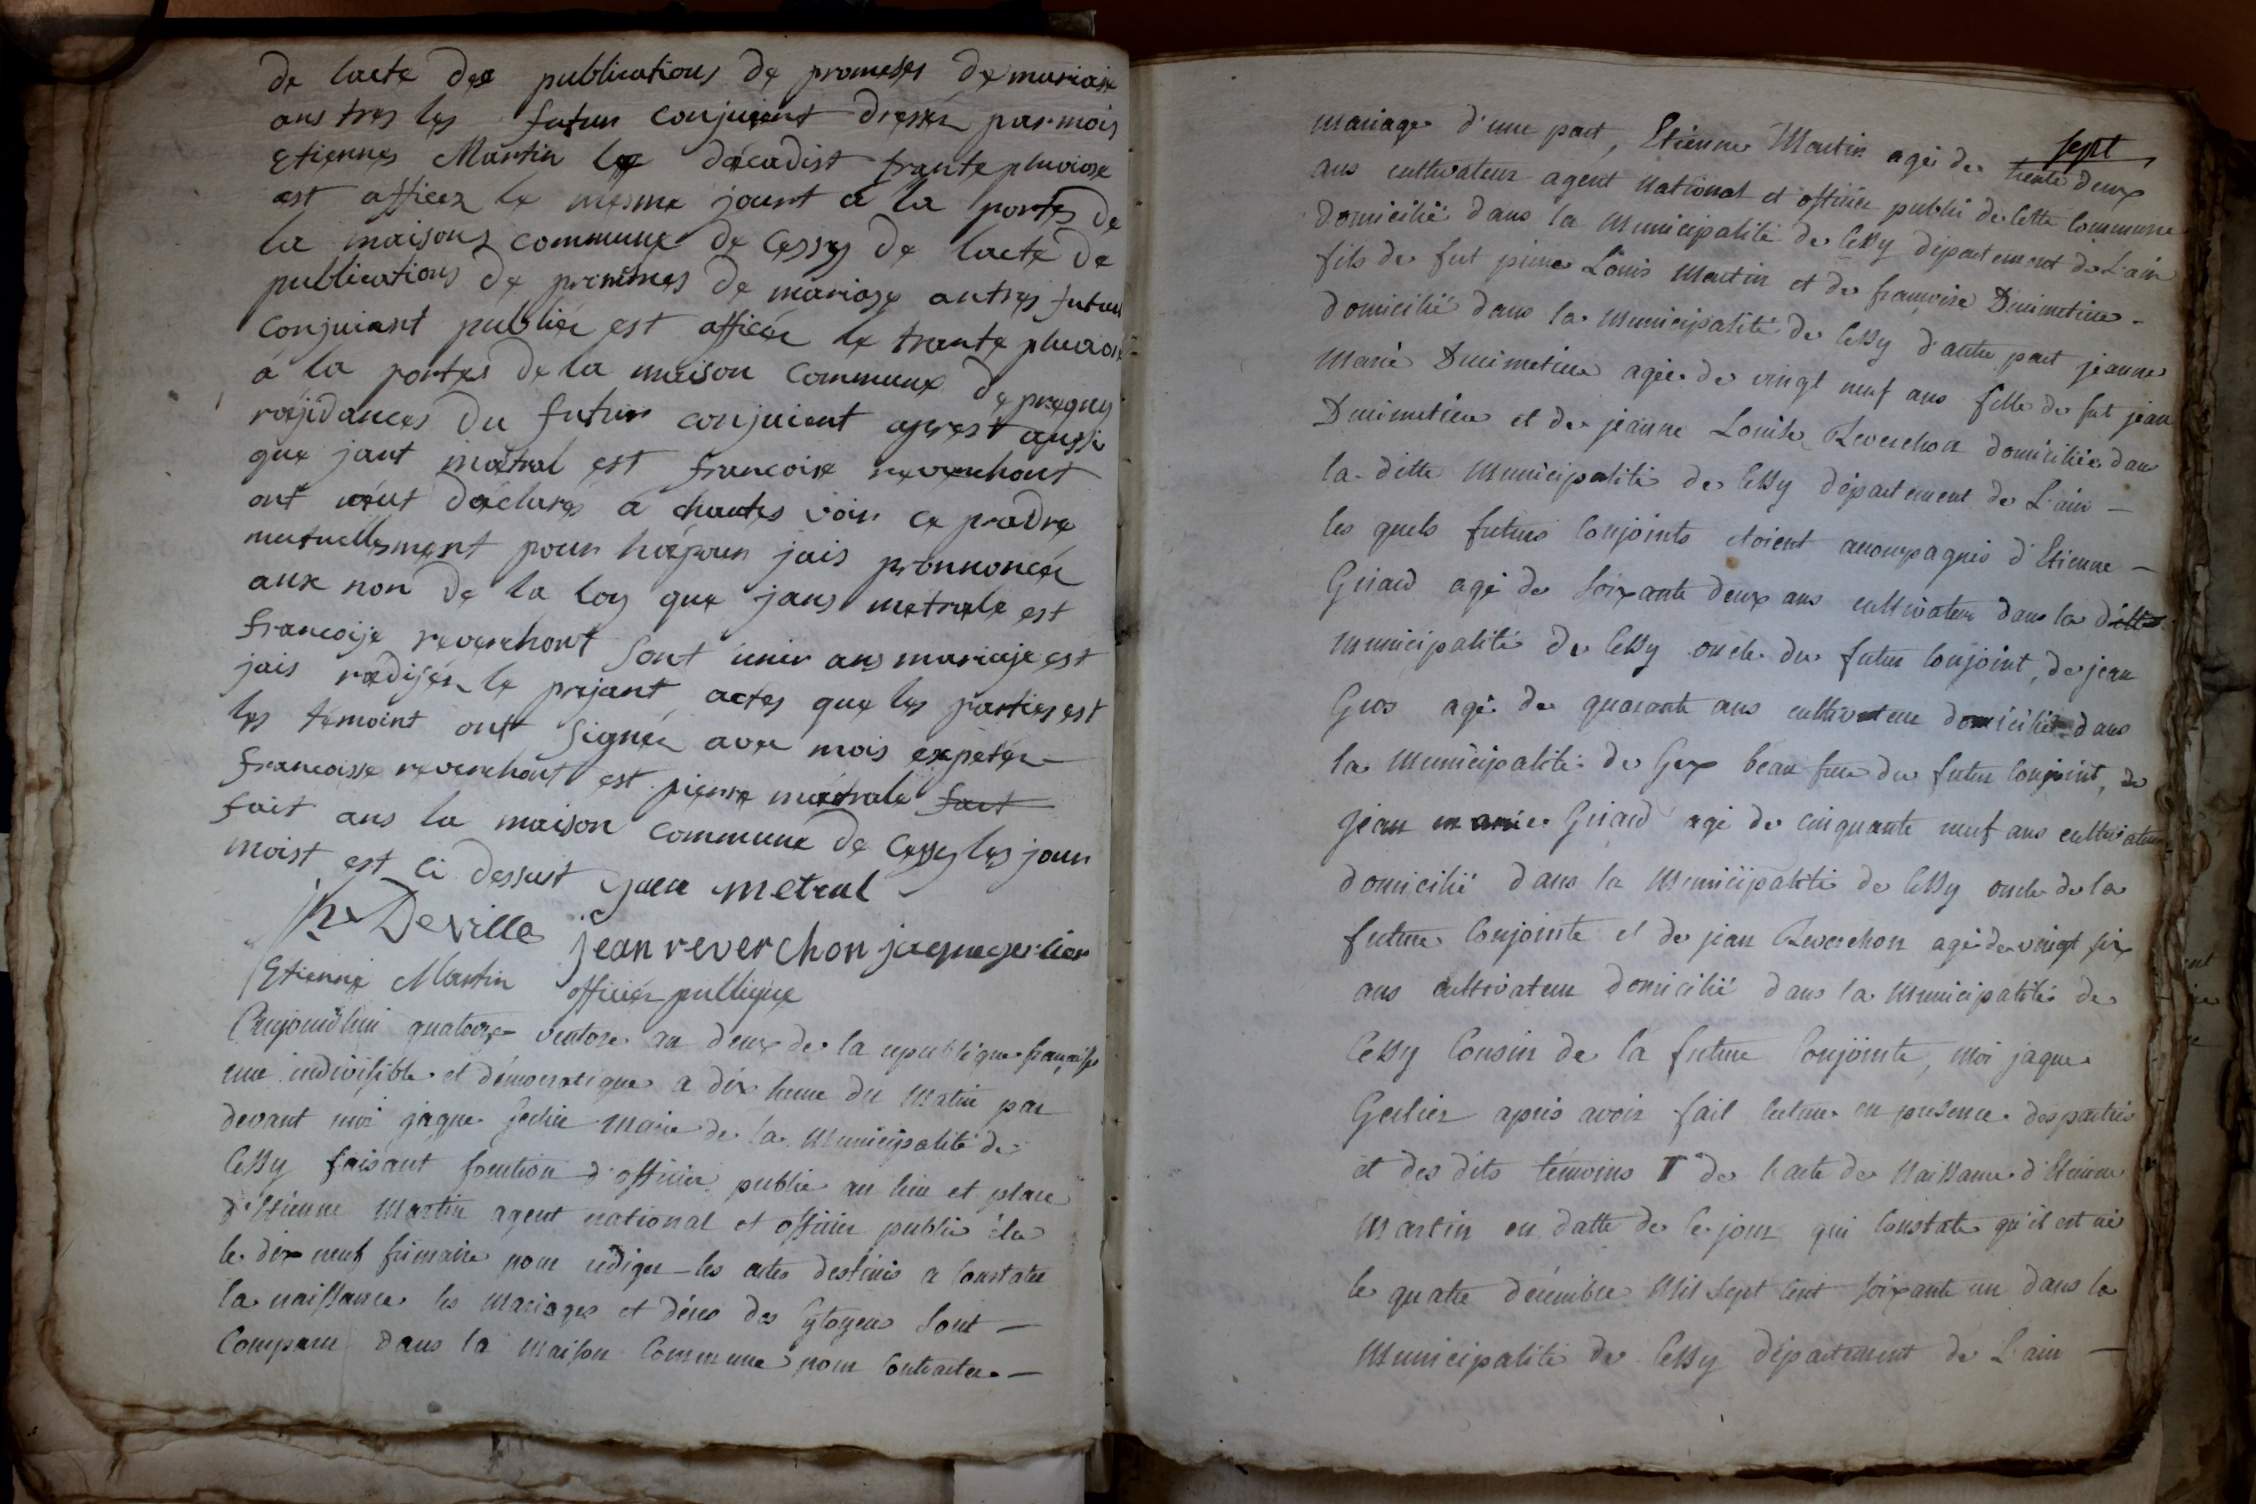 de lacte des publications de promeses de mariaje
ans tres les futur conjuient dressér par mois
Etiennes Martin le décadist trante pluviose
est afficez le mesme jount a la portes de
la maisons commune de Cessy de lacte de
publications de de mariage autres futur
conjuiant publiér est afficér le trante pluviose
a la portes de la maison commune de pregny
réjidances du futur conjuient aprest aussi
que jant métral est francoise reverchont
ont déclarés a hautes voir ce prodre
mutuellement pour jais pronnoncér
aux non de la loy que jans metrale est
francoise reverchont sont unir ans mariaje est
jais rédijér le prejant actes que les parties est
les témoint ont signér avec mois expétér
francoisse reverchont est pierre métrale fait
fait ans la maison commune de Cessy les jour
moist est ci dessust jean metral
Deville jean reverchon jaque gerlier
Etienne Martin officiér pullique
Aujourd'hui quatorze ventose an deux de la republique française
une indivisible et démocratique a dix heure du matin par
devant moi jaque gerlier maire de la municipalité de
Cessy faisant fonction d'officier public au lieu et place
d'Etienne Martin agent national et officier public élu
le dix neuf frimaire pour rédiger les actes destinés a constater
la naissance les mariages et décès des Cytoyens sont
Comparu dans la maison Commune pour contracter
mariage d'une part, Etienne Martin agé de trente deux sept
ans cultivateur agent national et officier public de cette commune
domicilié dans la municipalité de Cessy département de L'ain
fils de fut Louis Martin et de françoise Dunimetier
domicilié dans la municipalité de Cessy d'autre part jeanne
Marie Dunimetier agée de vingt neuf ans fille de fut jean
Dunimetier et de jeanne Louise Reverchon domiciliée dans
la ditte municipalité de Cessy département de L'ain
les quels futurs conjoints etoient accompagnés d'Etienne
Girard agé de soixante deux ans cultivateur dans la ditte
municipalité de Cessy oncle du futur conjoint, de jean
Gros agé de quarante ans cultivateur domicilié dans
la municipalité de Gex beau frere du futur conjoint, de
jean marie Girard agé de cinquante neuf ans cultivateur
domicilié dans la municipalité de Cessy oncle de la
future conjointe et de jean Reverchon agé de vingt six
ans cultivateur domicilié dans la municipalité de
Cessy Cousin de la future conjointe, moi jaque
Gerlier après avoir fait lecture en présence des parties
et des dits témoins de l'acte de naissance d'Etienne
Martin en datte de ce jour qui constate qu'il est né
le quatre décembre Mil sept cent soixante un dans la
municipalité de Cessy département de L'ain